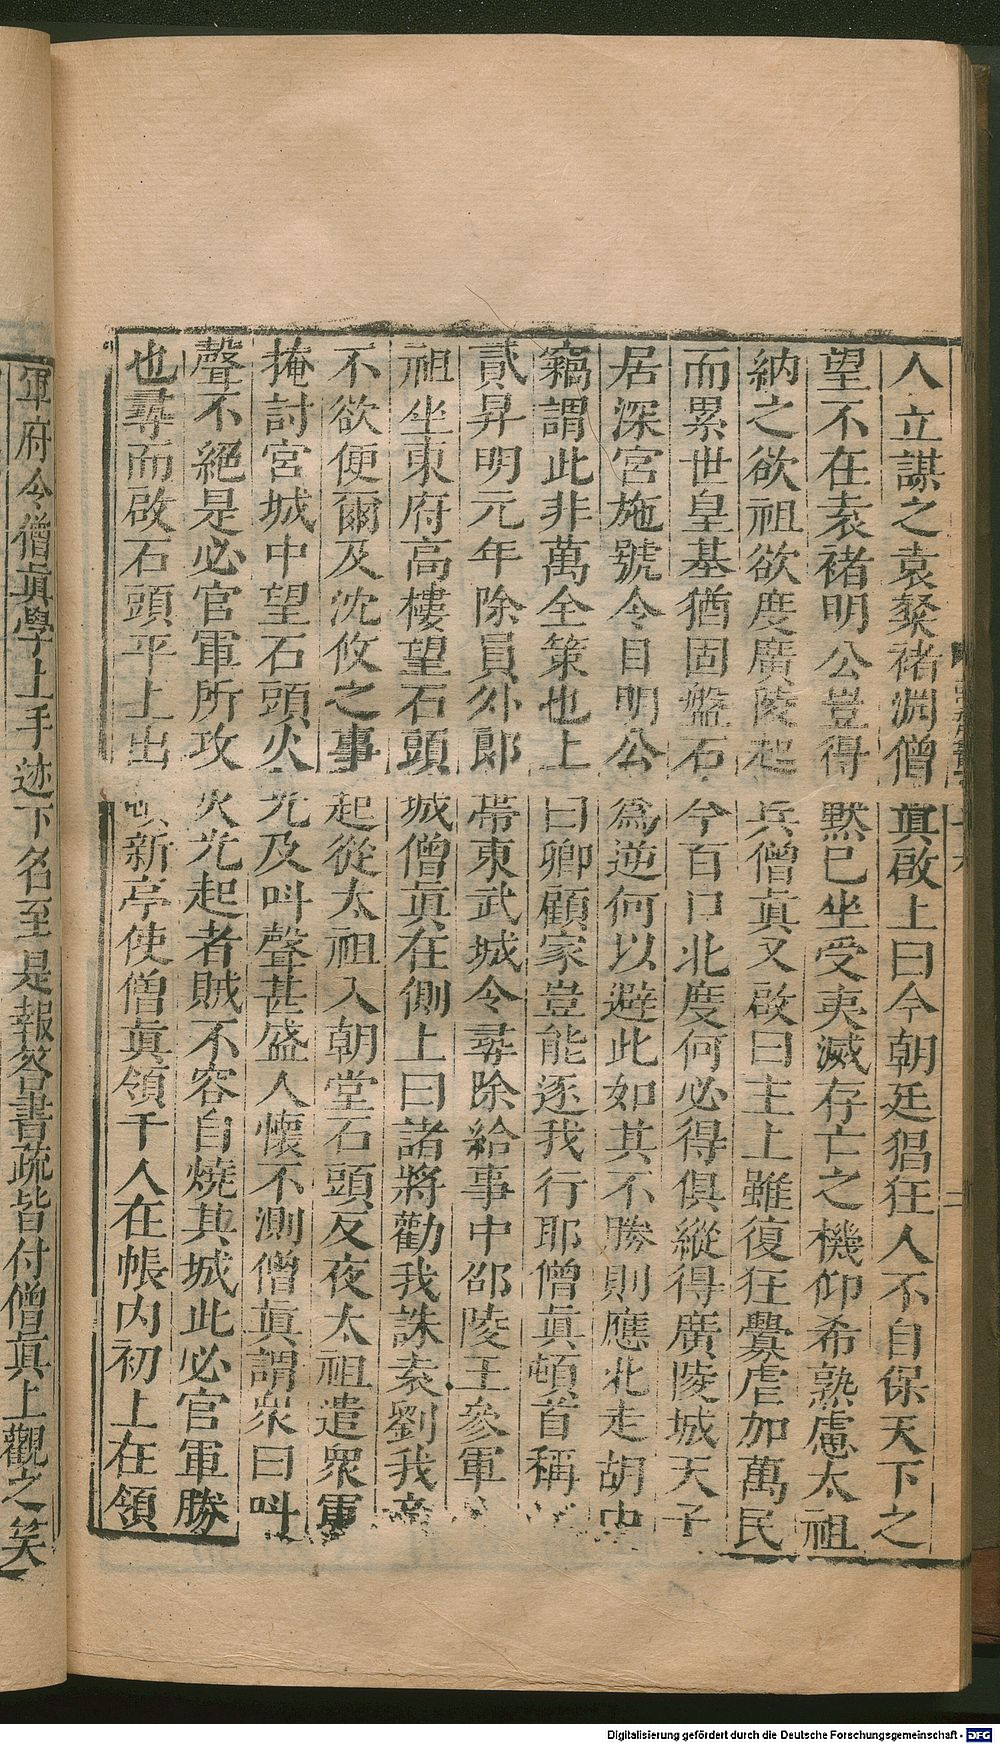 人立謀之袁粲褚淵僧眞啟上曰今朝廷猖狂人不自保天下之
望不在袁褚明公豈得黙已坐受夷滅存亡之機仰希熟慮太祖
納之欲祖欲度廣陵起兵僧眞又啟曰主上雖復狂釁虐加萬民
而累世皇基猶固盤石今百口北度何必得俱縱得廣陵城天子
居深宮施號令目明公爲逆何以避此如其不勝則應北走胡中
竊謂此非萬全策也上曰卿顧家豈能逐我行耶僧眞頓首稱
貳昇明元年除員外郎帶東武城令尋除給事中邵陵王參軍
祖坐東府高樓望石頭城僧眞在側上曰諸將勸我誅袁劉我意
不欲便爾及沈攸之事起從太祖入朝堂石頭反夜太祖遣衆軍
掩討宮城中望石頭火光及叫聲甚盛人懷不測僧眞謂衆曰叫
聲不絕是必官軍所攻火光起者賊不容自燒其城此必官軍勝
也尋而啟石頭平上出頓新亭使僧眞領千人在帳内初上在領
軍府令僧眞學上手迹下名至是報答書疏皆付僧眞上觀之笑
Digitalisierung gefördert durch die Deutsche Forschungsgemeinschaft - DFG